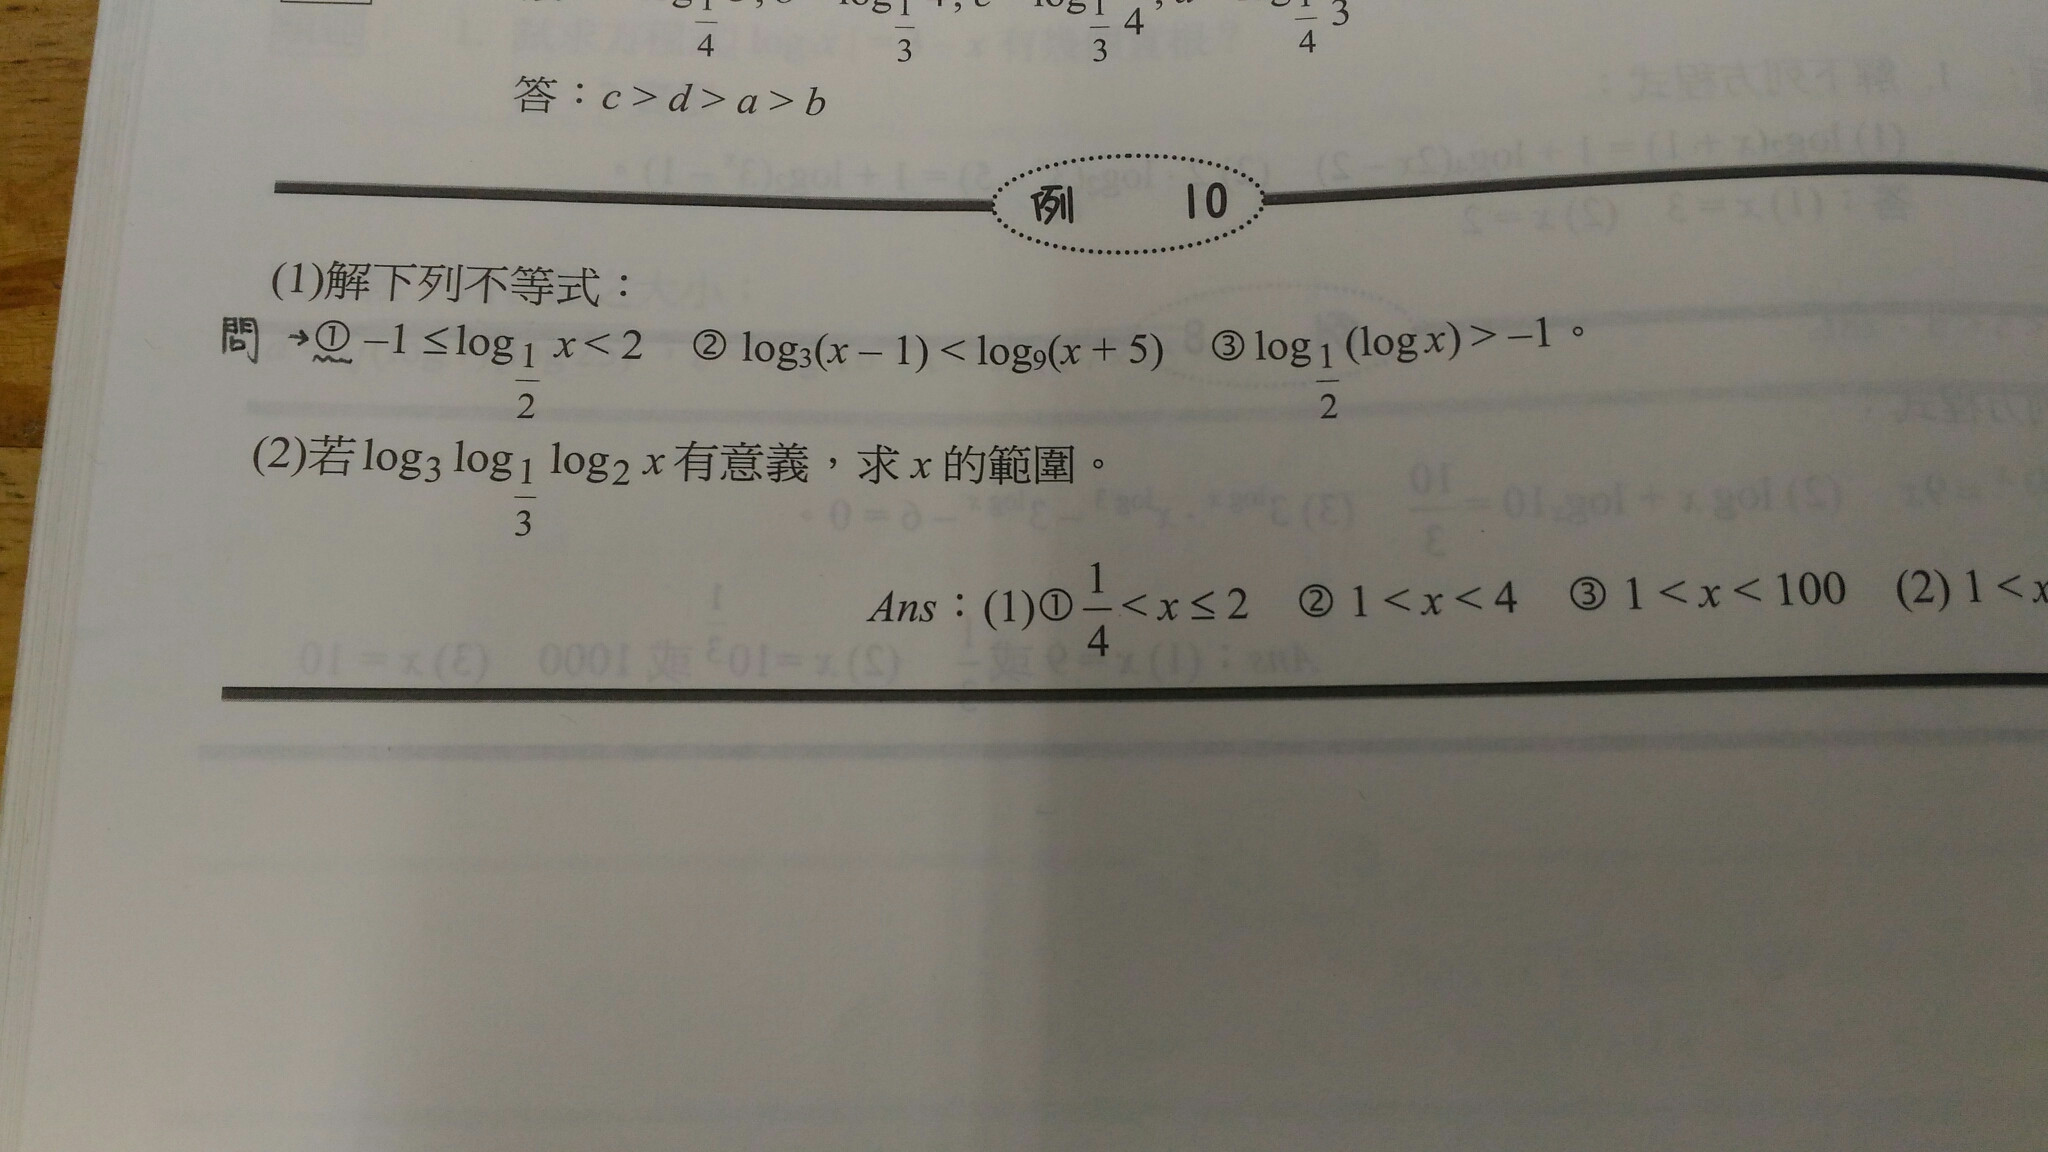 答：c > d > a > b
例 10
(1)解下列不等式：
問 →① –1 ≤ log_{1/2} x < 2 ② log₃(x – 1) < log₉(x + 5) ③ log_{1/2} (log x) > –1。
(2)若 log₃ log_{1/3} log₂ x 有意義，求 x 的範圍。
Ans：(1)① 1/4 < x ≤ 2 ② 1 < x < 4 ③ 1 < x < 100 (2) 1 < x